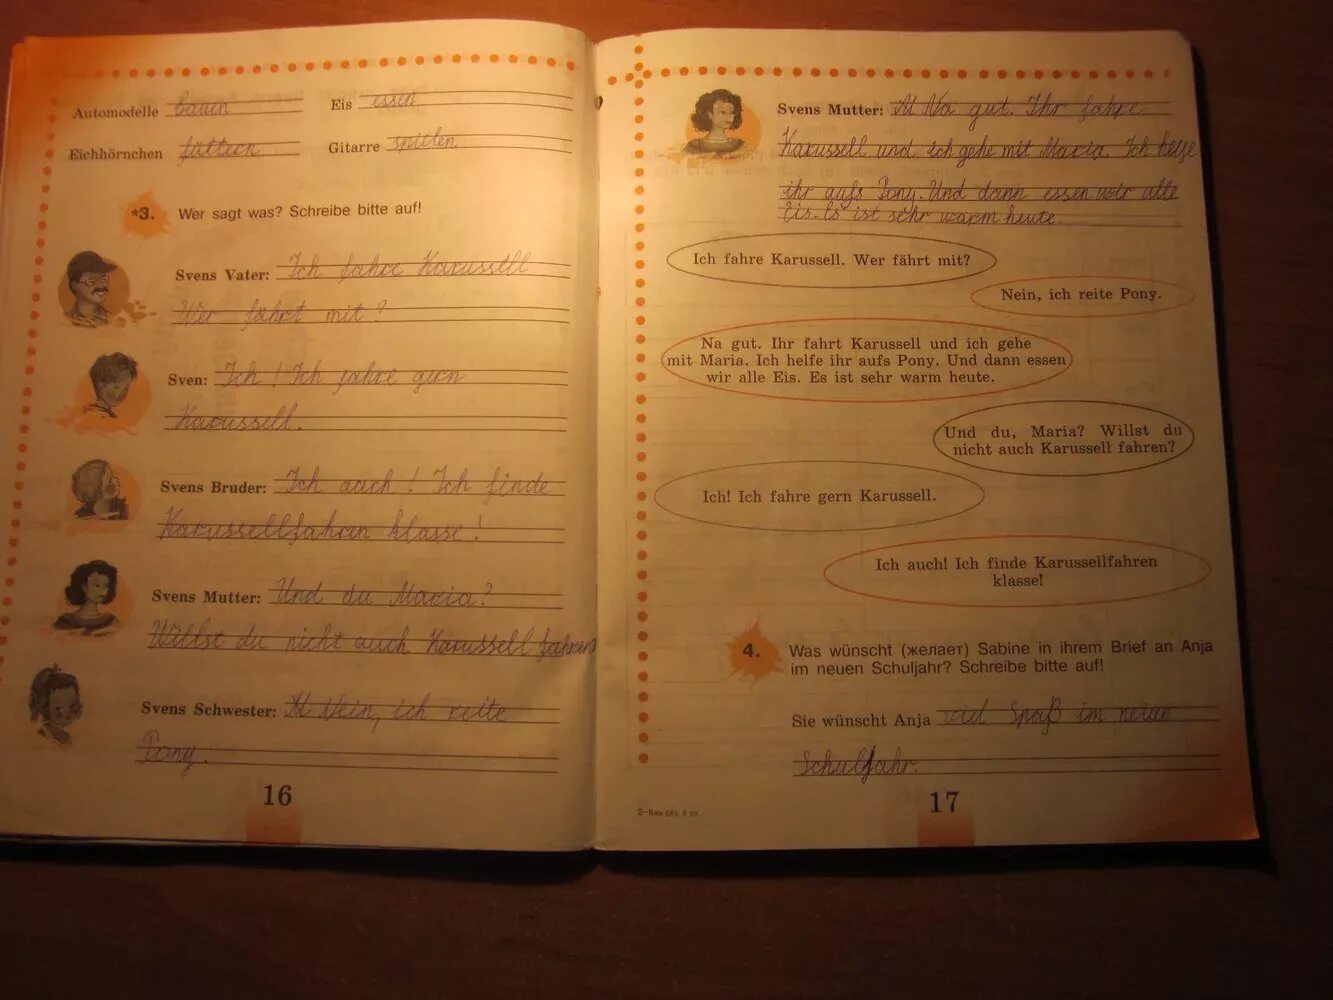 Automodelle bauen Eis essen
Eichhörnchen füttern Gitarre spielen
*3. Wer sagt was? Schreibe bitte auf!
Svens Vater: Ich fahre Karussell
Wer fährt mit?
Sven: Ich! Ich fahre gern
Karussell.
Svens Bruder: Ich auch! Ich finde
Karussellfahren klasse!
Svens Mutter: Und du Maria?
Willst du nicht auch Karussell fahren
Svens Schwester: Nein, ich reite
Pony.
16
Svens Mutter: Na gut. Ihr fahre
Karussell und ich gehe mit Maria. Ich helfe
ihr aufs Pony. Und dann essen wir alle
Eis. Es ist sehr warm heute.
Ich fahre Karussell. Wer fährt mit?
Nein, ich reite Pony.
Na gut. Ihr fahrt Karussell und ich gehe
mit Maria. Ich helfe ihr aufs Pony. Und dann essen
wir alle Eis. Es ist sehr warm heute.
Und du, Maria? Willst du
nicht auch Karussell fahren?
Ich! Ich fahre gern Karussell.
Ich auch! Ich finde Karussellfahren
klasse!
4. Was wünscht (желает) Sabine in ihrem Brief an Anja
im neuen Schuljahr? Schreibe bitte auf!
Sie wünscht Anja viel Spaß im neuen
Schuljahr.
17